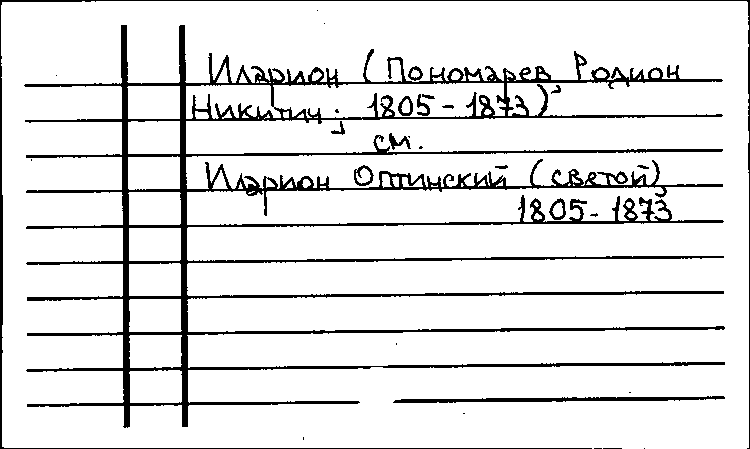 Иларион (Пономарев, Родион
Никитич; 1805 - 1873)
см.
Иларион Оптинский (светой)
1805 - 1873